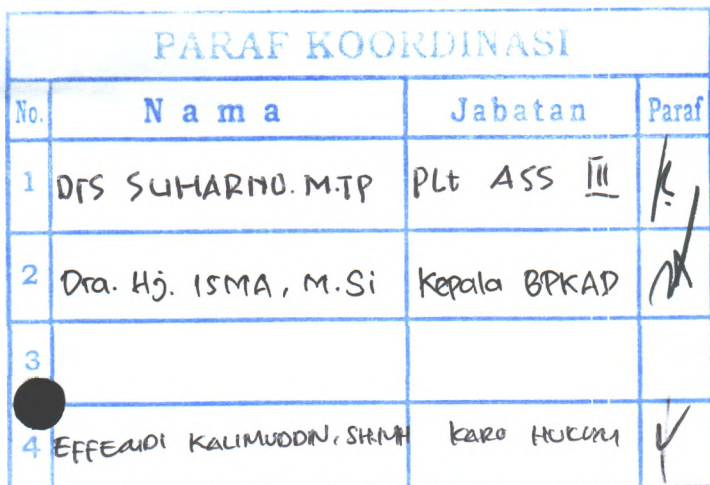 PARAF KOORDINASI
No. Nama Jabatan Paraf
1 Drs SUHARNO. M.TP Plt ASS III
2 Dra. Hj. ISMA, M.Si Kepala BPKAD
3
4 EFFENDI KALIMUDDIN, SH.MH KARO HUKUM